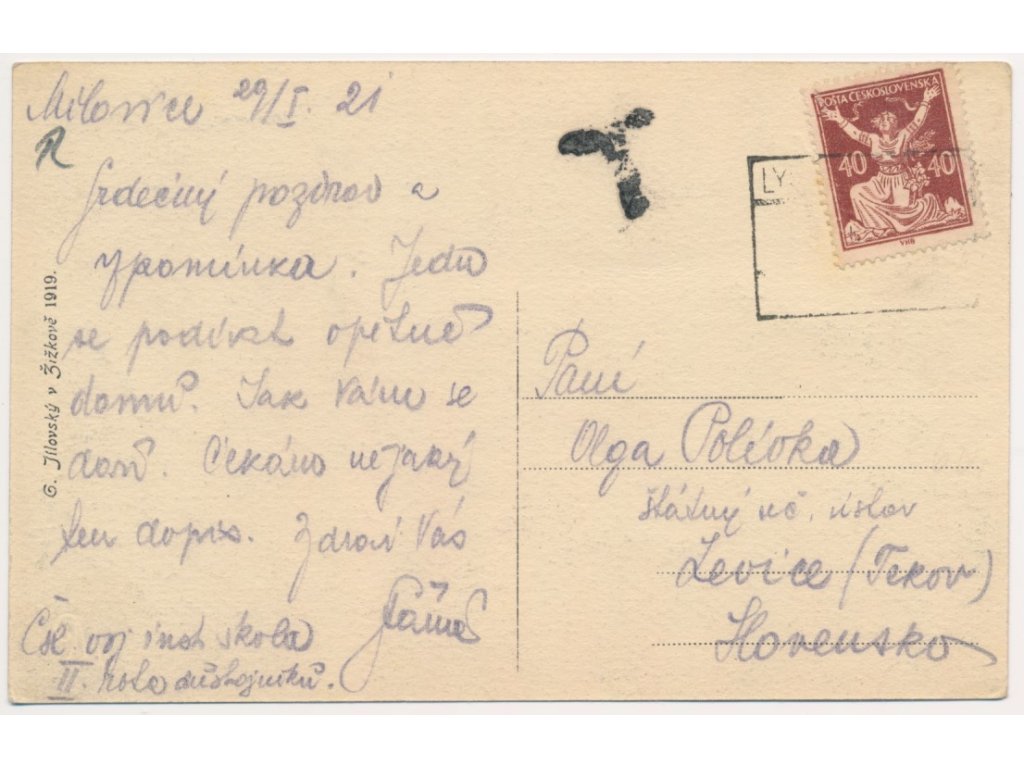 Milovice 29/I. 21
Srdečný pozdrav a
vzpomínka. Jedu
se podívat opětně
domů. Jak Vám se
daří. Čekám nějaký
ten dopis. Zdraví Vás
Čsl voj inst škola
II. kolo důstojníků.
G. Jílovský v Žižkově 1919.
T
POŠTA ČESKOSLOVENSKÁ
40 40
VHB
LY
Paní
Olga Polívka
štátný uč. ústav
Levice (Tekov)
Slovensko